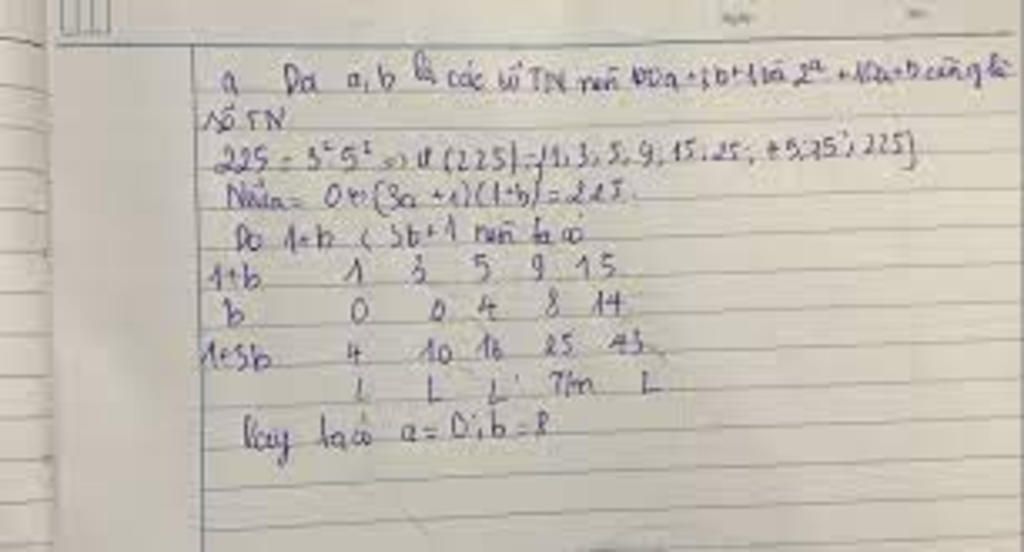 a Do a, b là các số TN nên 100a+3b+1 và 2^a + 10a+b cũng là
số TN
225 = 3² 5² => Ư (225) = {1, 3, 5, 9, 15, 25, 45, 75, 225}
Nếu a = 0 => (3b +1)(1+b) = 225.
Do 1+b < 3b+1 nên ta có
1+b 1 3 5 9 15
b 0 0 4 8 14
1+3b 4 10 16 25 43
L L L T/m L
Vậy ta có a = 0; b = 8